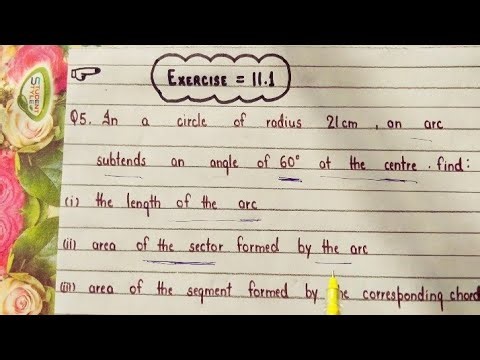 STUDENT STYLE
EXERCISE = 11.1
Q5. In a circle of radius 21cm, an arc
subtends an angle of 60° at the centre. find:
(i) the length of the arc
(ii) area of the sector formed by the arc
(iii) area of the segment formed by the corresponding chord